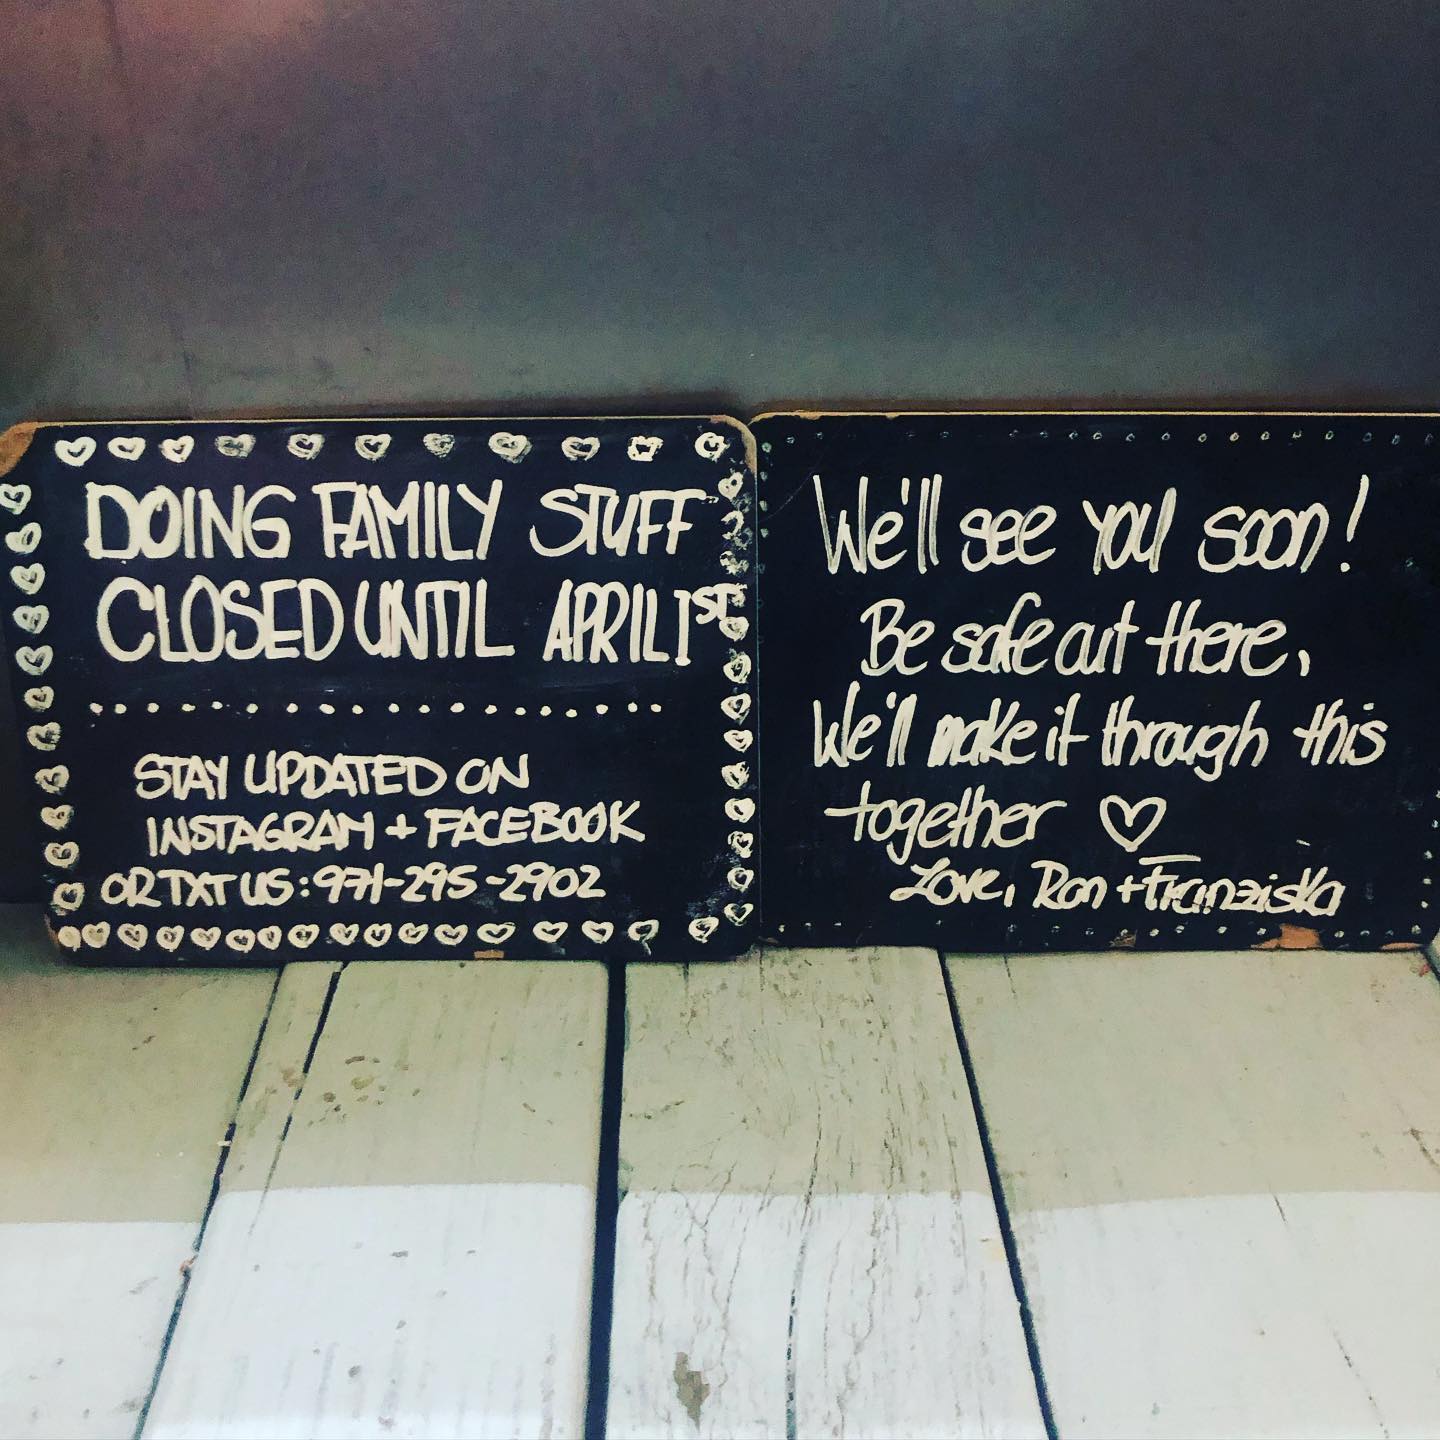 DOING FAMILY STUFF
CLOSED UNTIL APRIL 1ST
STAY UPDATED ON
INSTAGRAM + FACEBOOK
OR TXT US: 971-295-2902
We'll see you soon!
Be safe out there,
We'll make it through this
together ♡
Love, Ron + Franziska